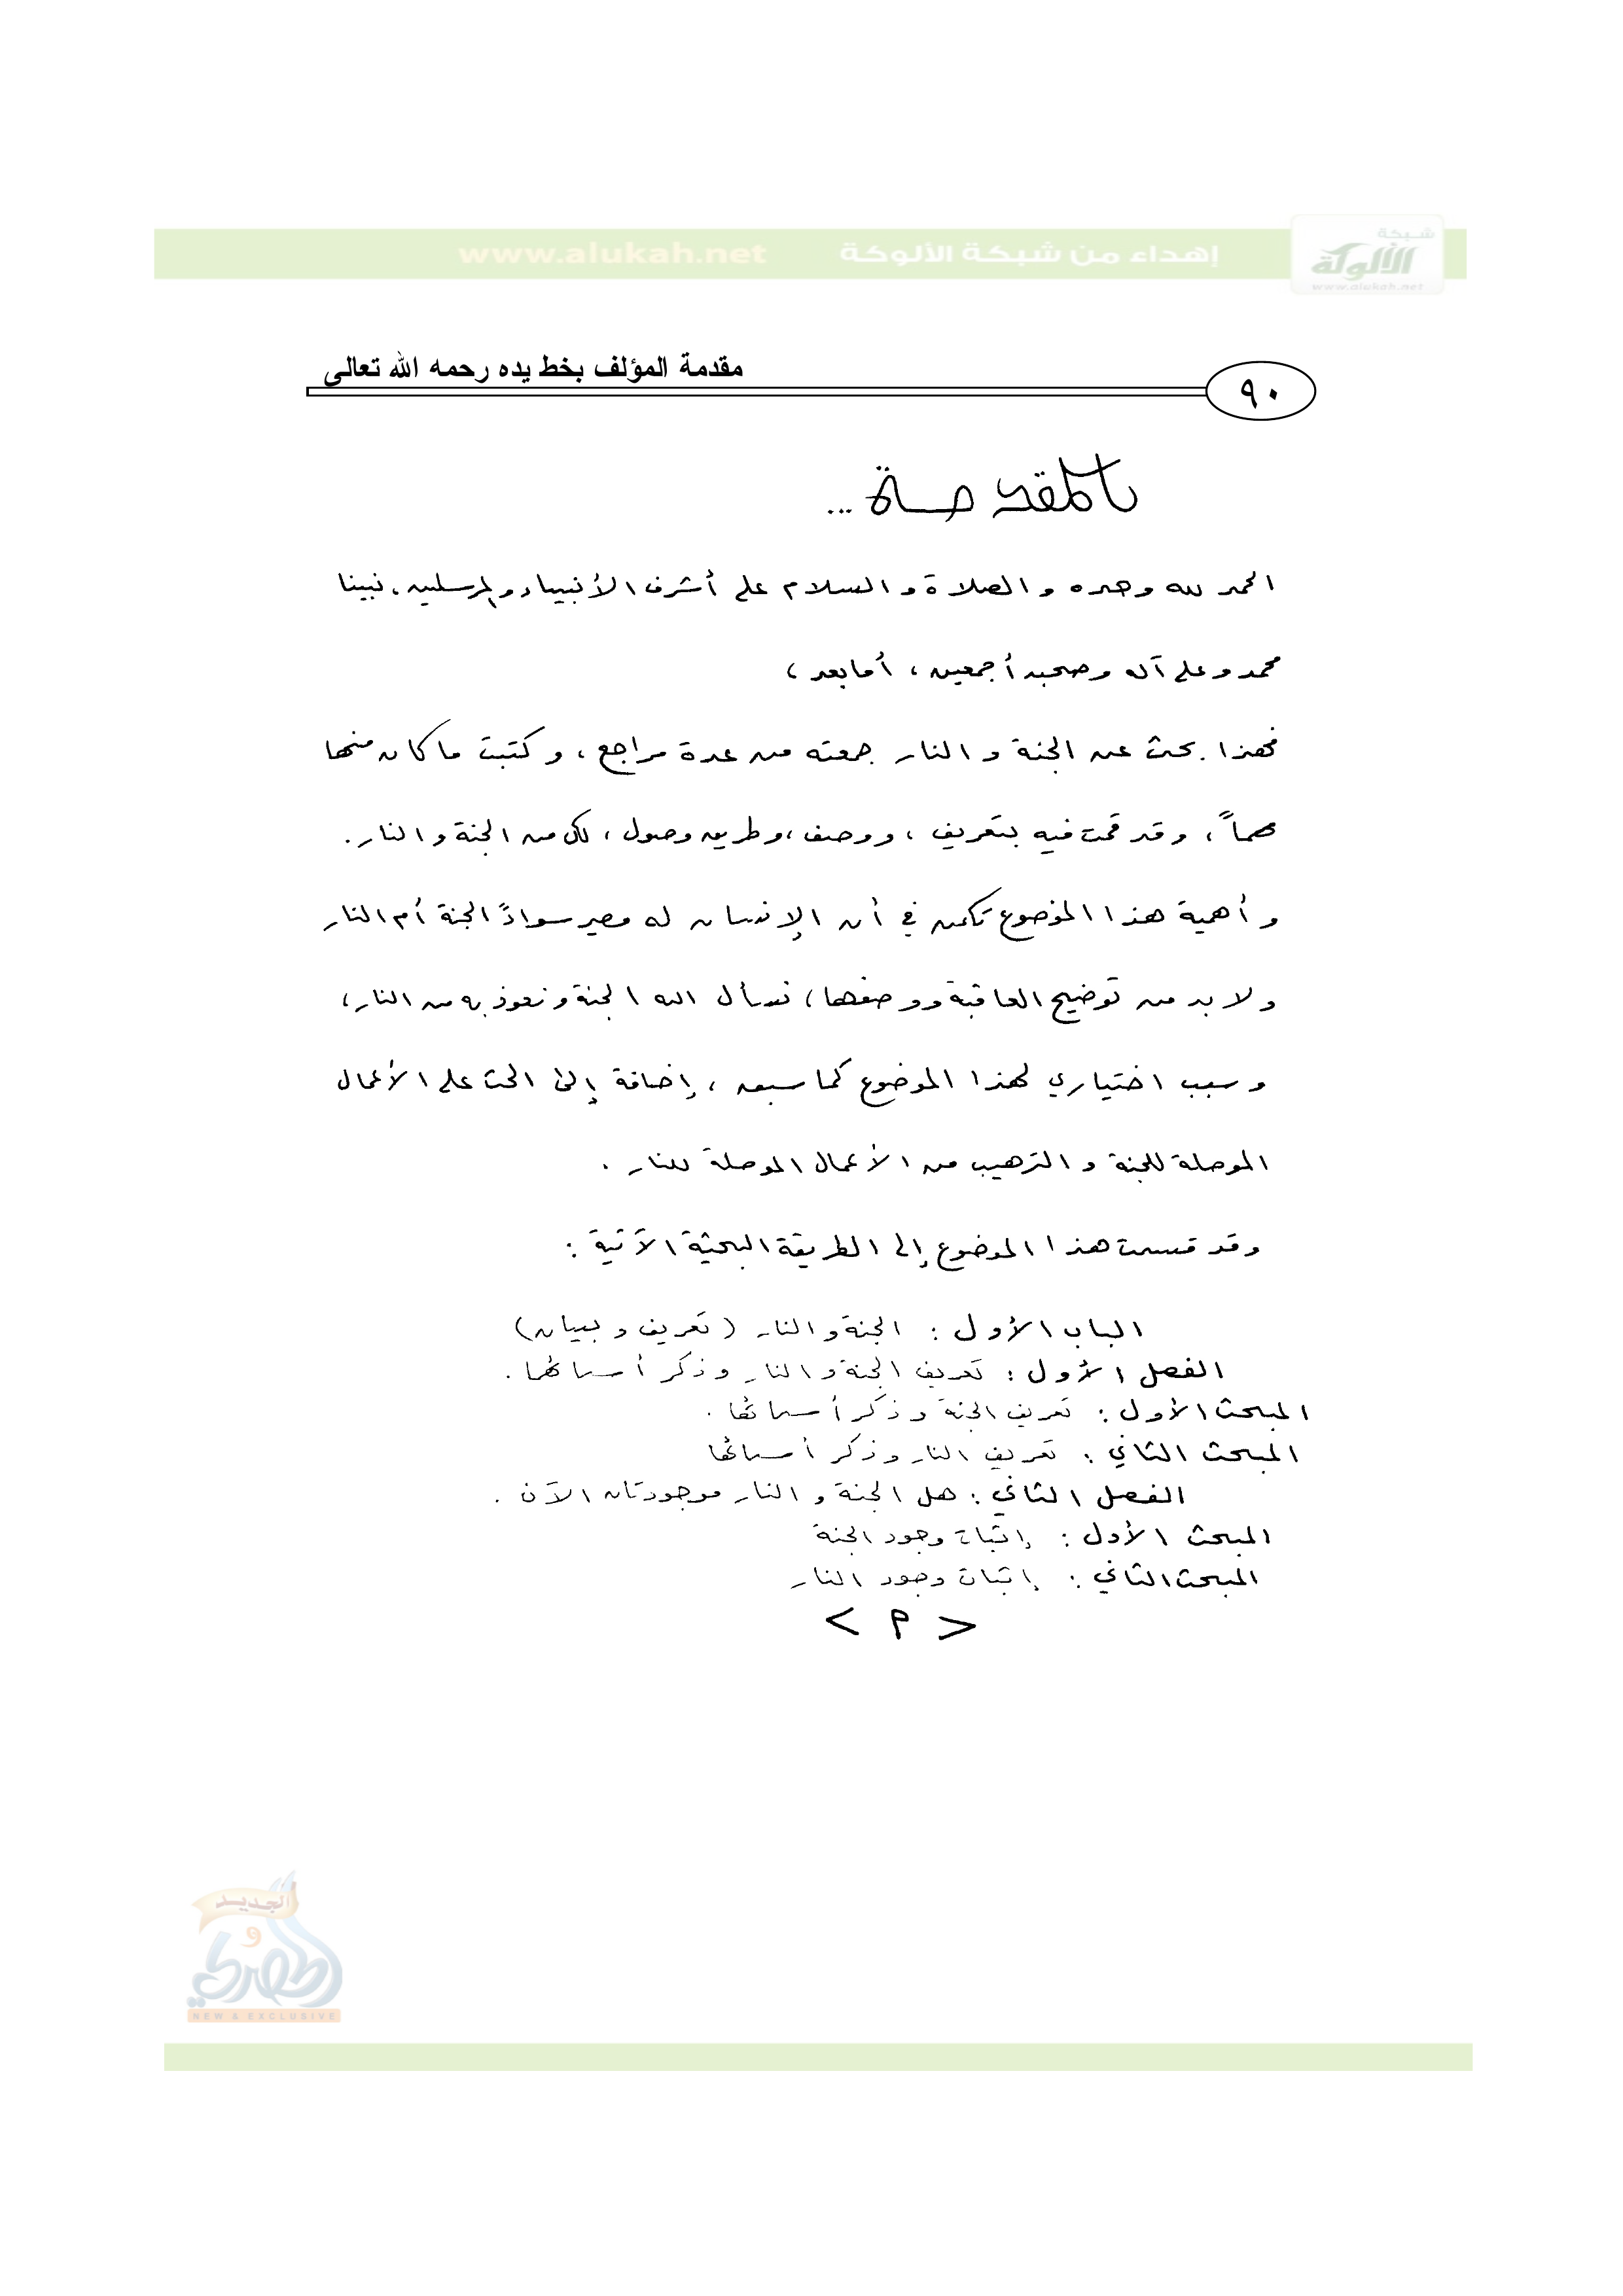 شبكة
الألوكة
www.alukah.net
إهداء من شبكة الألوكة www.alukah.net
٩٠
مقدمة المؤلف بخط يده رحمه الله تعالى
المقدمة ...
الحمد لله وحده و الصلاة و السلام على أشرف الأنبياء والمرسلين، نبينا
محمد وعلى آله وصحبه أجمعين ، أما بعد ،
فهذا بحث عن الجنة و النار جمعته من عدة مراجع ، و كتبت ما كان منها
مهماً ، وقد قمت فيه بتعريف ، ووصف ، وطريق وصول ، لكل من الجنة و النار .
و أهمية هذا الموضوع تكمن في أن الإنسان له مصير سواءً الجنة أم النار
ولا بد من توضيح العاقبة ووصفها ، نسأل الله الجنة و نعوذ به من النار ،
و سبب اختياري لهذا الموضوع كما سبق ، إضافة إلى الحث على الأعمال
الموصلة للجنة و الترهيب من الأعمال الموصلة للنار .
وقد قسمت هذا الموضوع إلى الطريقة البحثية الآتية :
الباب الأول : الجنة و النار ( تعريف و بيان )
الفصل الأول : تعريف الجنة و النار وذكر أسمائهما .
المبحث الأول : تعريف الجنة وذكر أسمائها .
المبحث الثاني : تعريف النار وذكر أسمائها
الفصل الثاني : هل الجنة و النار موجودتان الآن .
المبحث الأول : إثبات وجود الجنة
المبحث الثاني : إثبات وجود النار
< م >
الجديد
و
الحصري
NEW & EXCLUSIVE